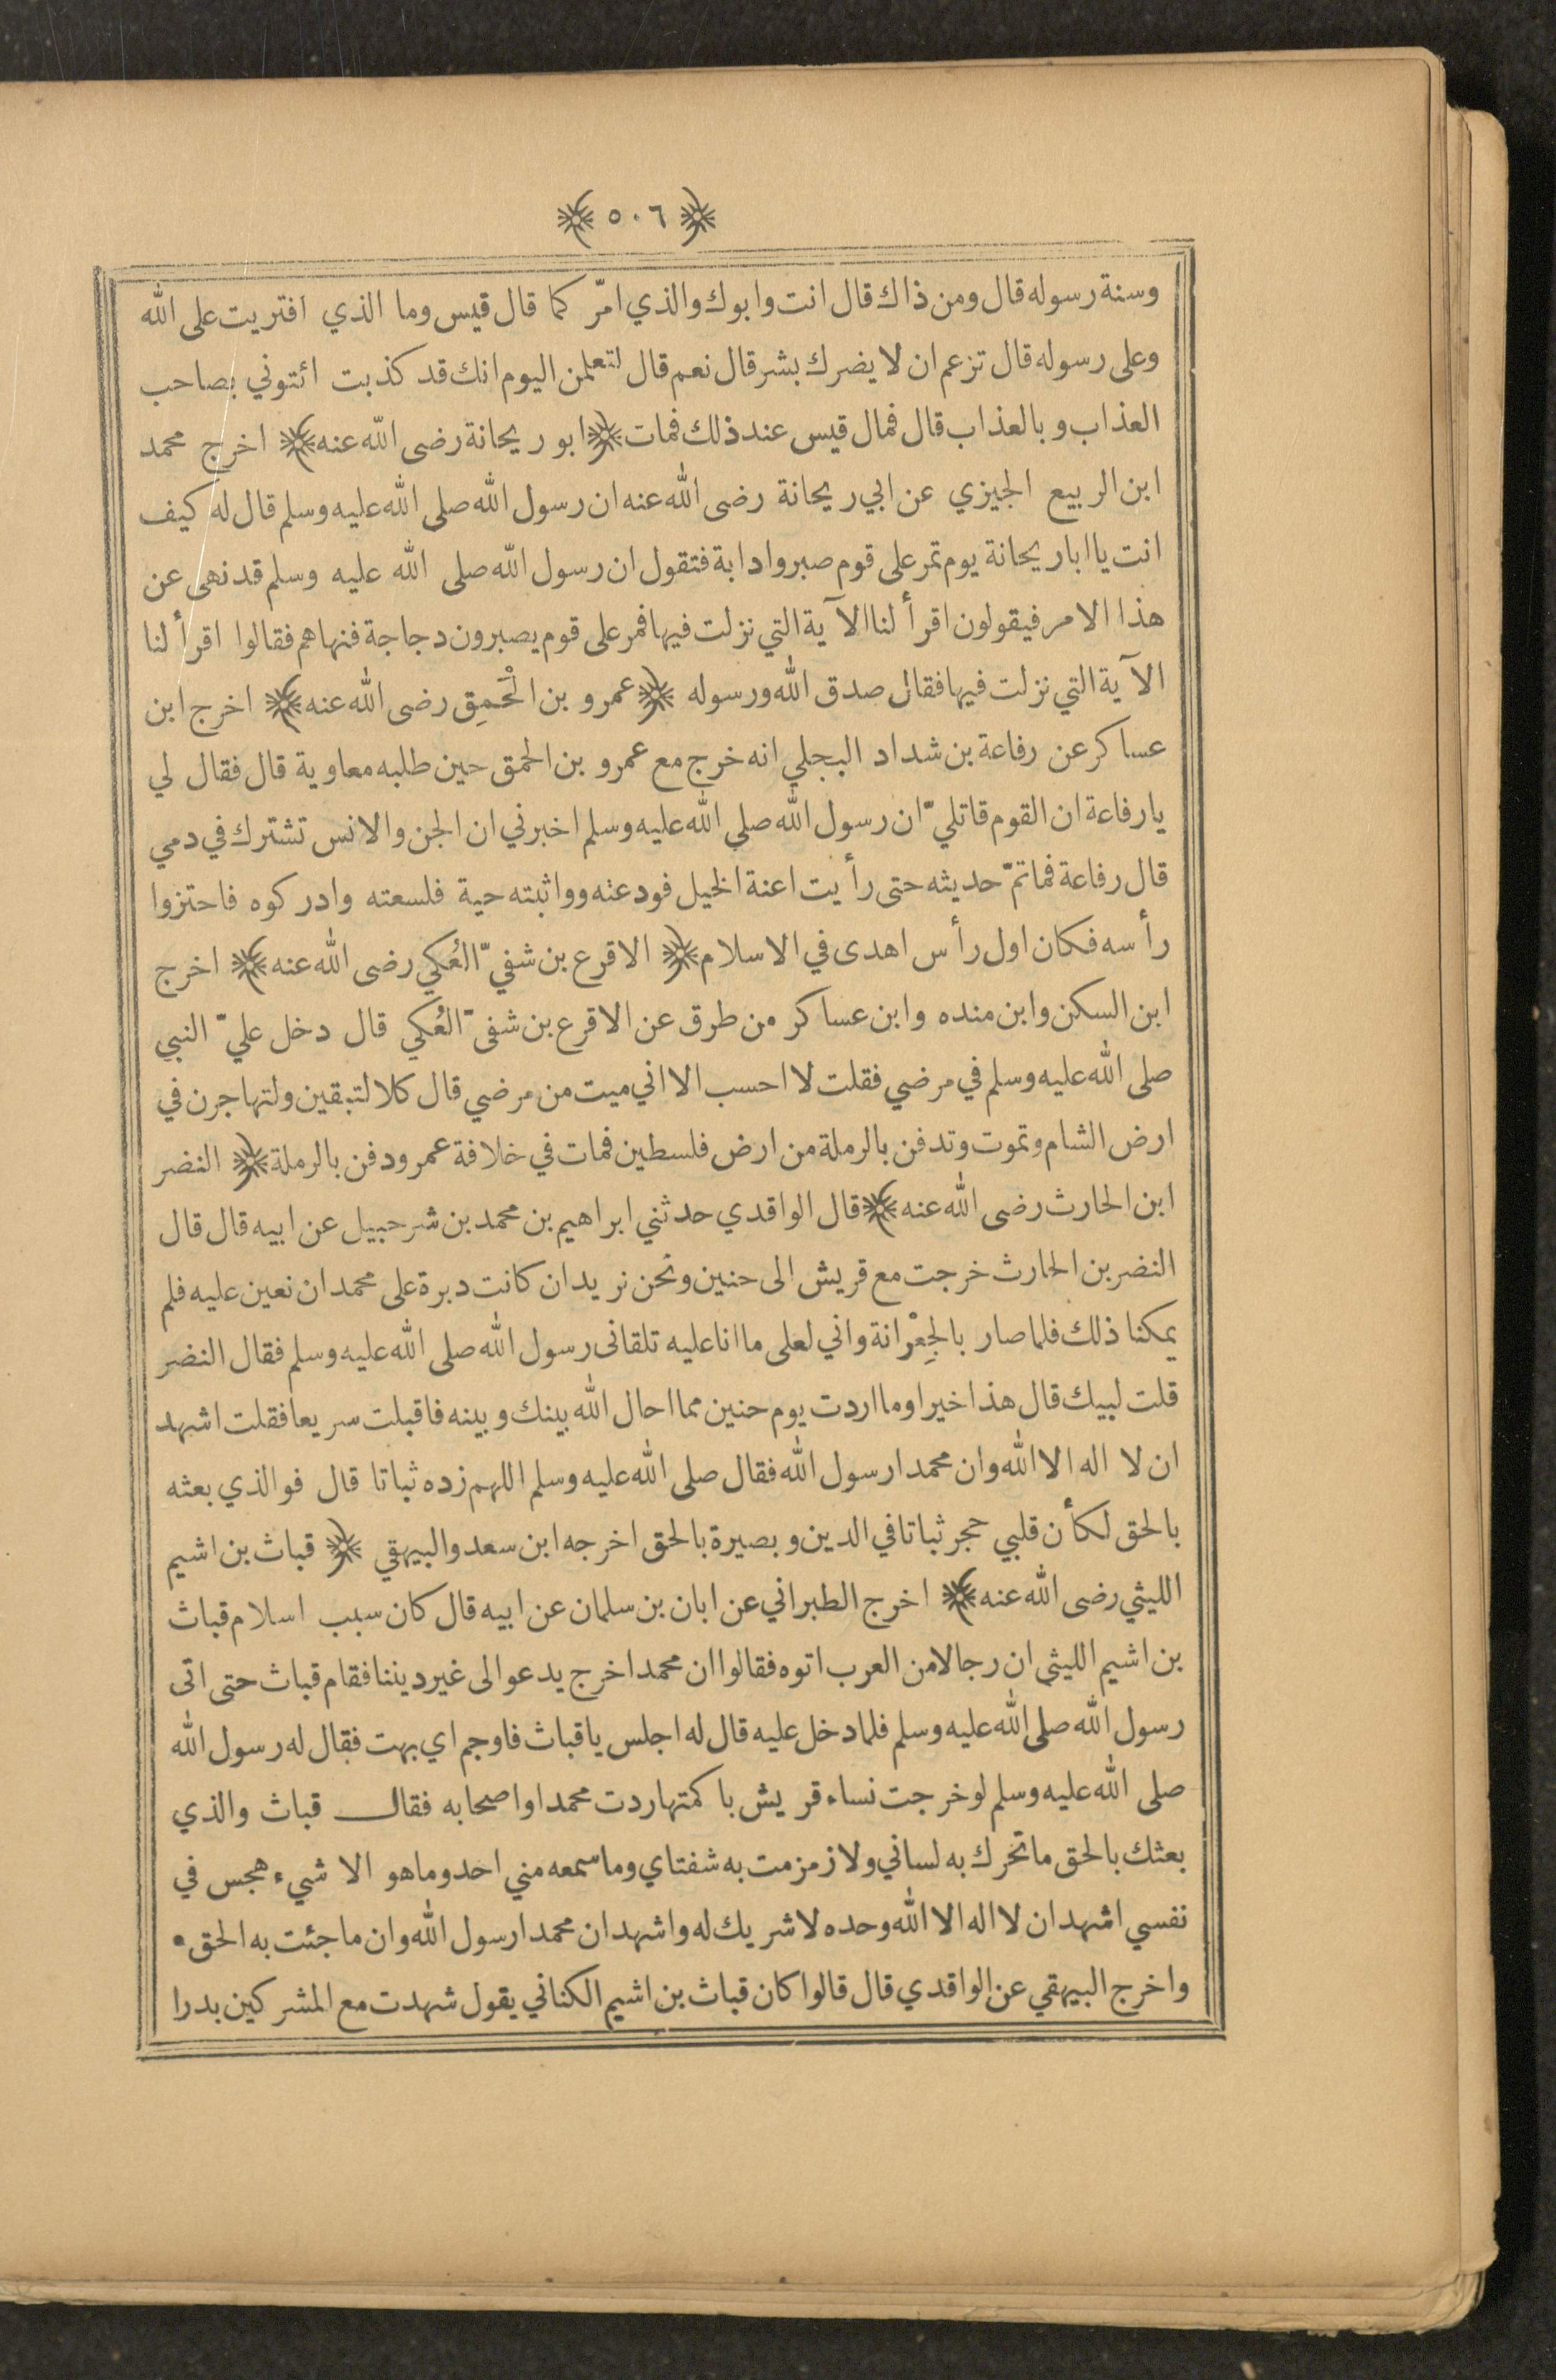 ﴿ ٥٠٦ ﴾
وسنة رسوله قال ومن ذاك قال انت وابوك والذي امّر كما قال قيس وما الذي افتريت على الله
وعلى رسوله قال تزعم ان لا يضرك بشر قال نعم قال لتعلمن اليوم انك قد كذبت ائتوني بصاحب
العذاب وبالعذاب قال فمال قيس عند ذلك فمات ﴿ ابو ريحانة رضى الله عنه ﴾ اخرج محمد
ابن الربيع الجيزي عن ابي ريحانة رضى الله عنه ان رسول الله صلى الله عليه وسلم قال له كيف
انت يا ابا ريحانة يوم تمر على قوم صبروا دابة فتقول ان رسول الله صلى الله عليه وسلم قد نهى عن
هذا الامر فيقولون اقرأ لنا الآية التي نزلت فيها فمر على قوم يصبرون دجاجة فنهاهم فقالوا اقرأ لنا
الآية التي نزلت فيها فقال صدق الله ورسوله ﴿ عمرو بن الْحَمِق رضى الله عنه ﴾ اخرج ابن
عساكر عن رفاعة بن شداد البجلي انه خرج مع عمرو بن الحمق حين طلبه معاوية قال فقال لي
يارفاعة ان القوم قاتليّ ان رسول الله صلى الله عليه وسلم اخبرني ان الجن والانس تشترك في دمي
قال رفاعة فماتمّ حديثه حتى رأيت اعنة الخيل فودعته وواثبته حية فلسعته وادركوه فاحتزوا
رأسه فكان اول رأس اهدى في الاسلام ﴿ الاقرع بن شفيّ العُكي رضى الله عنه ﴾ اخرج
ابن السكن وابن منده وابن عساكر من طرق عن الاقرع بن شفىّ العُكي قال دخل عليّ النبي
صلى الله عليه وسلم في مرضي فقلت لا احسب الا اني ميت من مرضي قال كلا لتبقين ولتهاجرن في
ارض الشام وتموت وتدفن بالرملة من ارض فلسطين فمات في خلافة عمر ودفن بالرملة ﴿ النضر
ابن الحارث رضى الله عنه ﴾ قال الواقدي حدثني ابراهيم بن محمد بن شرحبيل عن ابيه قال قال
النضر بن الحارث خرجت مع قريش الى حنين ونحن نريد ان كانت دبرة على محمد ان نعين عليه فلم
يمكنا ذلك فلما صار بالجِعْرانة واني لعلى ما انا عليه تلقانى رسول الله صلى الله عليه وسلم فقال النضر
قلت لبيك قال هذا خير اوما اردت يوم حنين مما احال الله بينك وبينه فاقبلت سريعا فقلت اشهد
ان لا اله الا الله وان محمدا رسول الله فقال صلى الله عليه وسلم اللهم زده ثباتا قال فوالذي بعثه
بالحق لكأن قلبي حجر ثباتا في الدين وبصيرة بالحق اخرجه ابن سعد والبيهقي ﴿ قباث بن اشيم
الليثي رضى الله عنه ﴾ اخرج الطبراني عن ابان بن سلمان عن ابيه قال كان سبب اسلام قباث
بن اشيم الليثى ان رجالا من العرب اتوه فقالوا ان محمدا خرج يدعو الى غير ديننا فقام قباث حتى اتى
رسول الله صلى الله عليه وسلم فلما دخل عليه قال له اجلس يا قباث فاوجم اي بهت فقال له رسول الله
صلى الله عليه وسلم لو خرجت نساء قريش باكمتها ردت محمدا واصحابه فقال قباث والذي
بعثك بالحق ما تحرك به لساني ولا زمزمت به شفتاي وما سمعه مني احد وما هو الا شيء هجس في
نفسي اشهد ان لا اله الا الله وحده لا شريك له واشهد ان محمدا رسول الله وان ما جئت به الحق •
واخرج البيهقي عن الواقدي قال قالوا كان قباث بن اشيم الكناني يقول شهدت مع المشركين بدرا